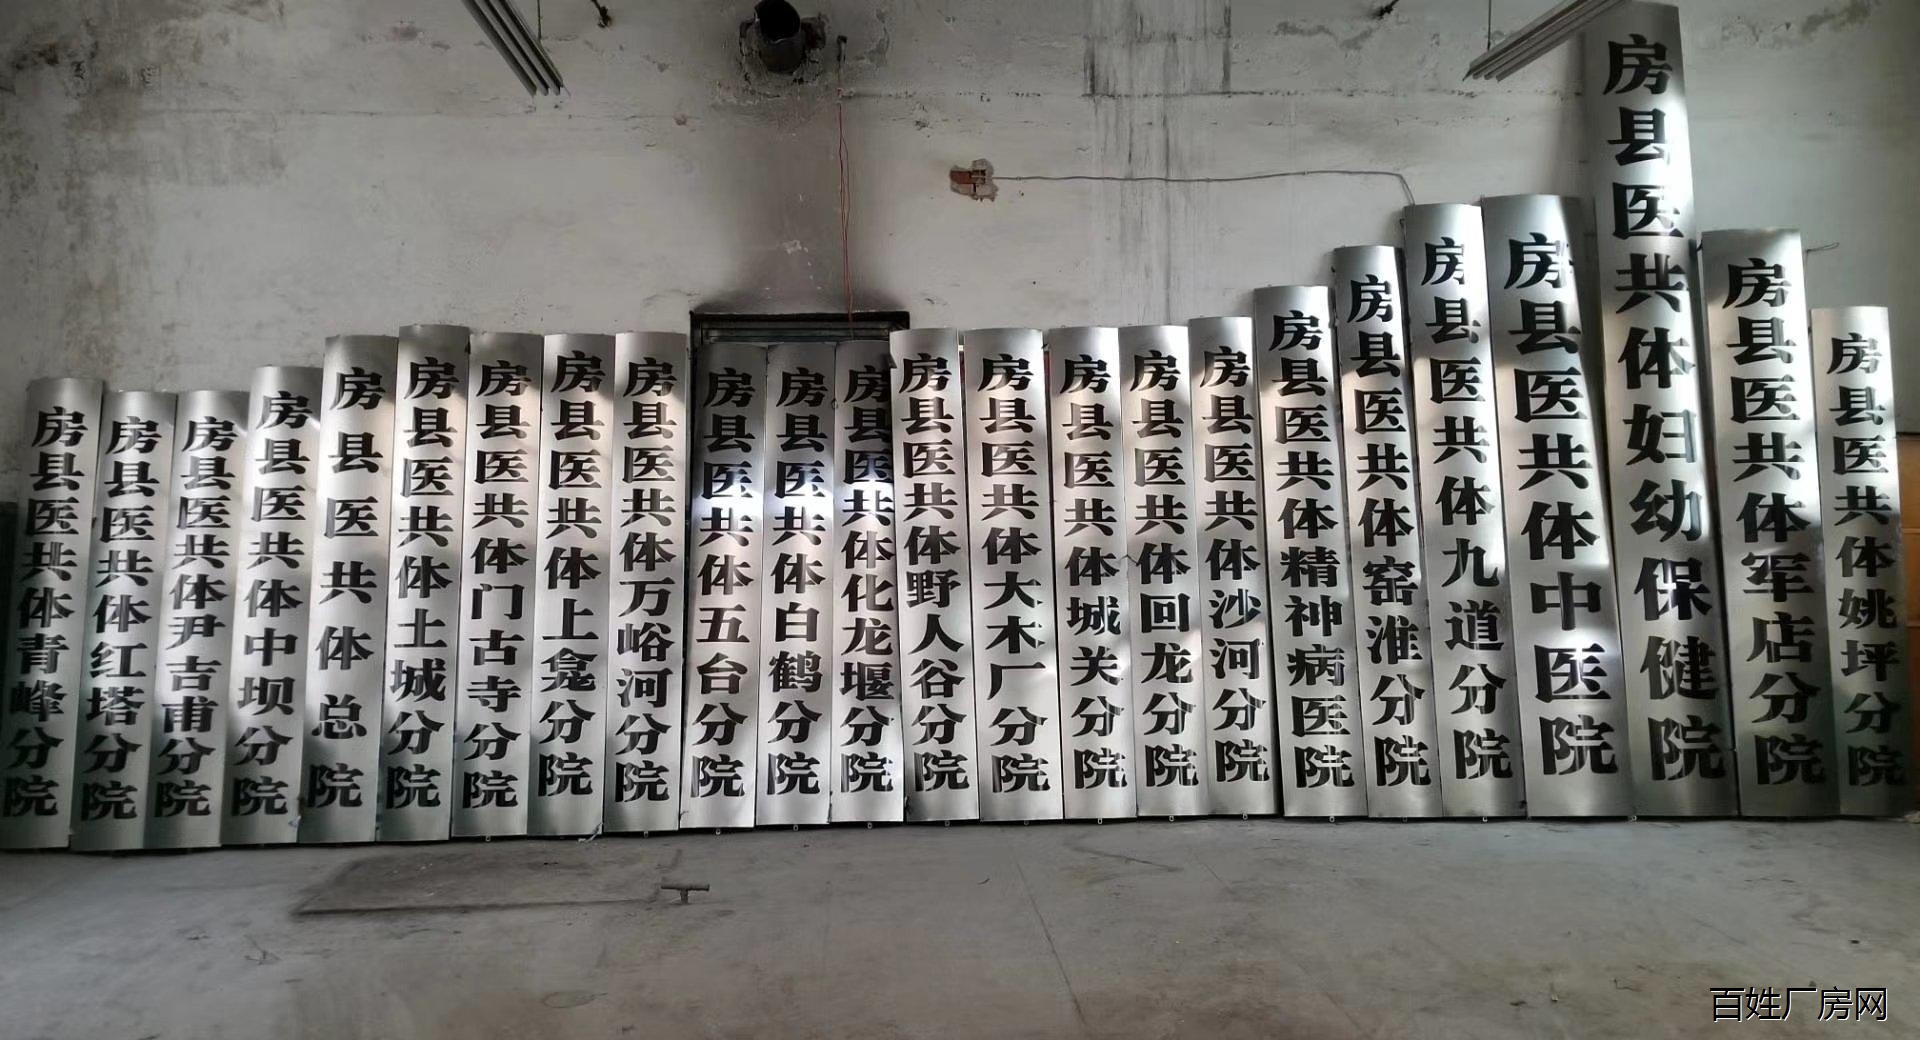 房县医共体青峰分院
房县医共体红塔分院
房县医共体尹吉甫分院
房县医共体中坝分院
房县医共体总院
房县医共体土城分院
房县医共体门古寺分院
房县医共体上龛分院
房县医共体万峪河分院
房县医共体五台分院
房县医共体白鹤分院
房县医共体化龙堰分院
房县医共体野人谷分院
房县医共体大木厂分院
房县医共体城关分院
房县医共体回龙分院
房县医共体沙河分院
房县医共体精神病医院
房县医共体窑淮分院
房县医共体九道分院
房县医共体中医院
房县医共体妇幼保健院
房县医共体军店分院
房县医共体姚坪分院
百姓厂房网